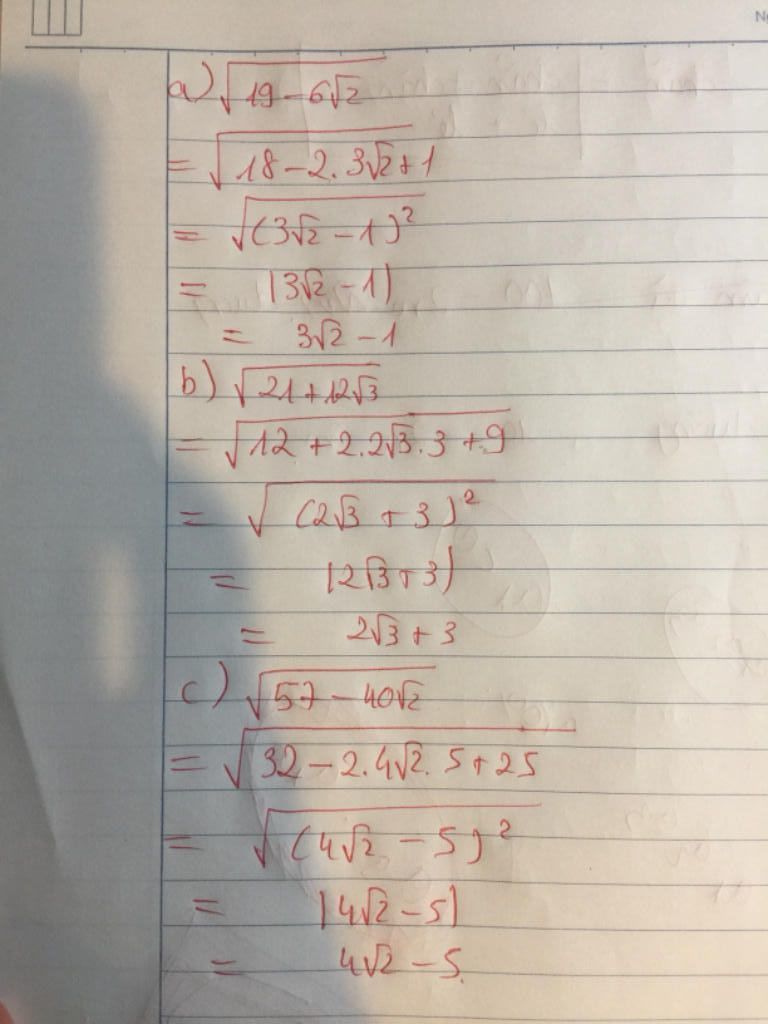 a) √(19 - 6√2)
= √(18 - 2.3√2 + 1
= √(3√2 - 1)²
= |3√2 - 1|
= 3√2 - 1
b) √(21 + 12√3)
= √(12 + 2.2√3.3 + 9)
= √(2√3 + 3)²
= |2√3 + 3|
= 2√3 + 3
c) √(57 - 40√2)
= √(32 - 2.4√2.5 + 25)
= √(4√2 - 5)²
= |4√2 - 5|
= 4√2 - 5.